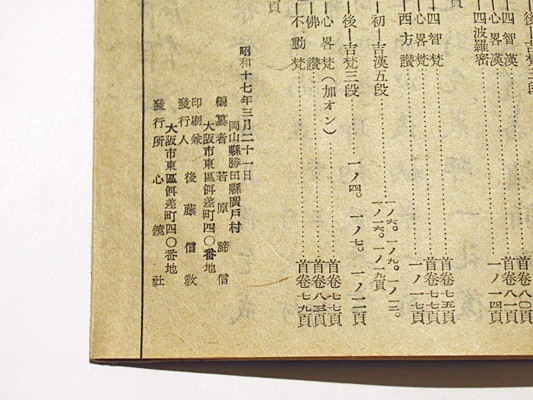 頁
四波羅密……一ノ一四頁
四智漢……首卷八一頁
心畧漢
四智梵……首卷七五頁
心畧梵……首卷七七頁
西方讃……一ノ一七頁
初—吉漢五段……一ノ六。一ノ九。一ノ一三。
一ノ一六。一ノ一九頁
後—吉梵三段……一ノ四。一ノ七。一ノ一二頁
心畧梵(加オン)……首卷七七頁
佛讃……首卷八三頁
不動梵……首卷七九頁
昭和十七年三月二十一日
岡山縣勝田縣廣戸村
編纂者 若原諦信
大阪市東區餌差町四〇番地
印刷兼發行人 後藤信敎
大阪市東區餌差町四〇番地
發行所 心鏡社